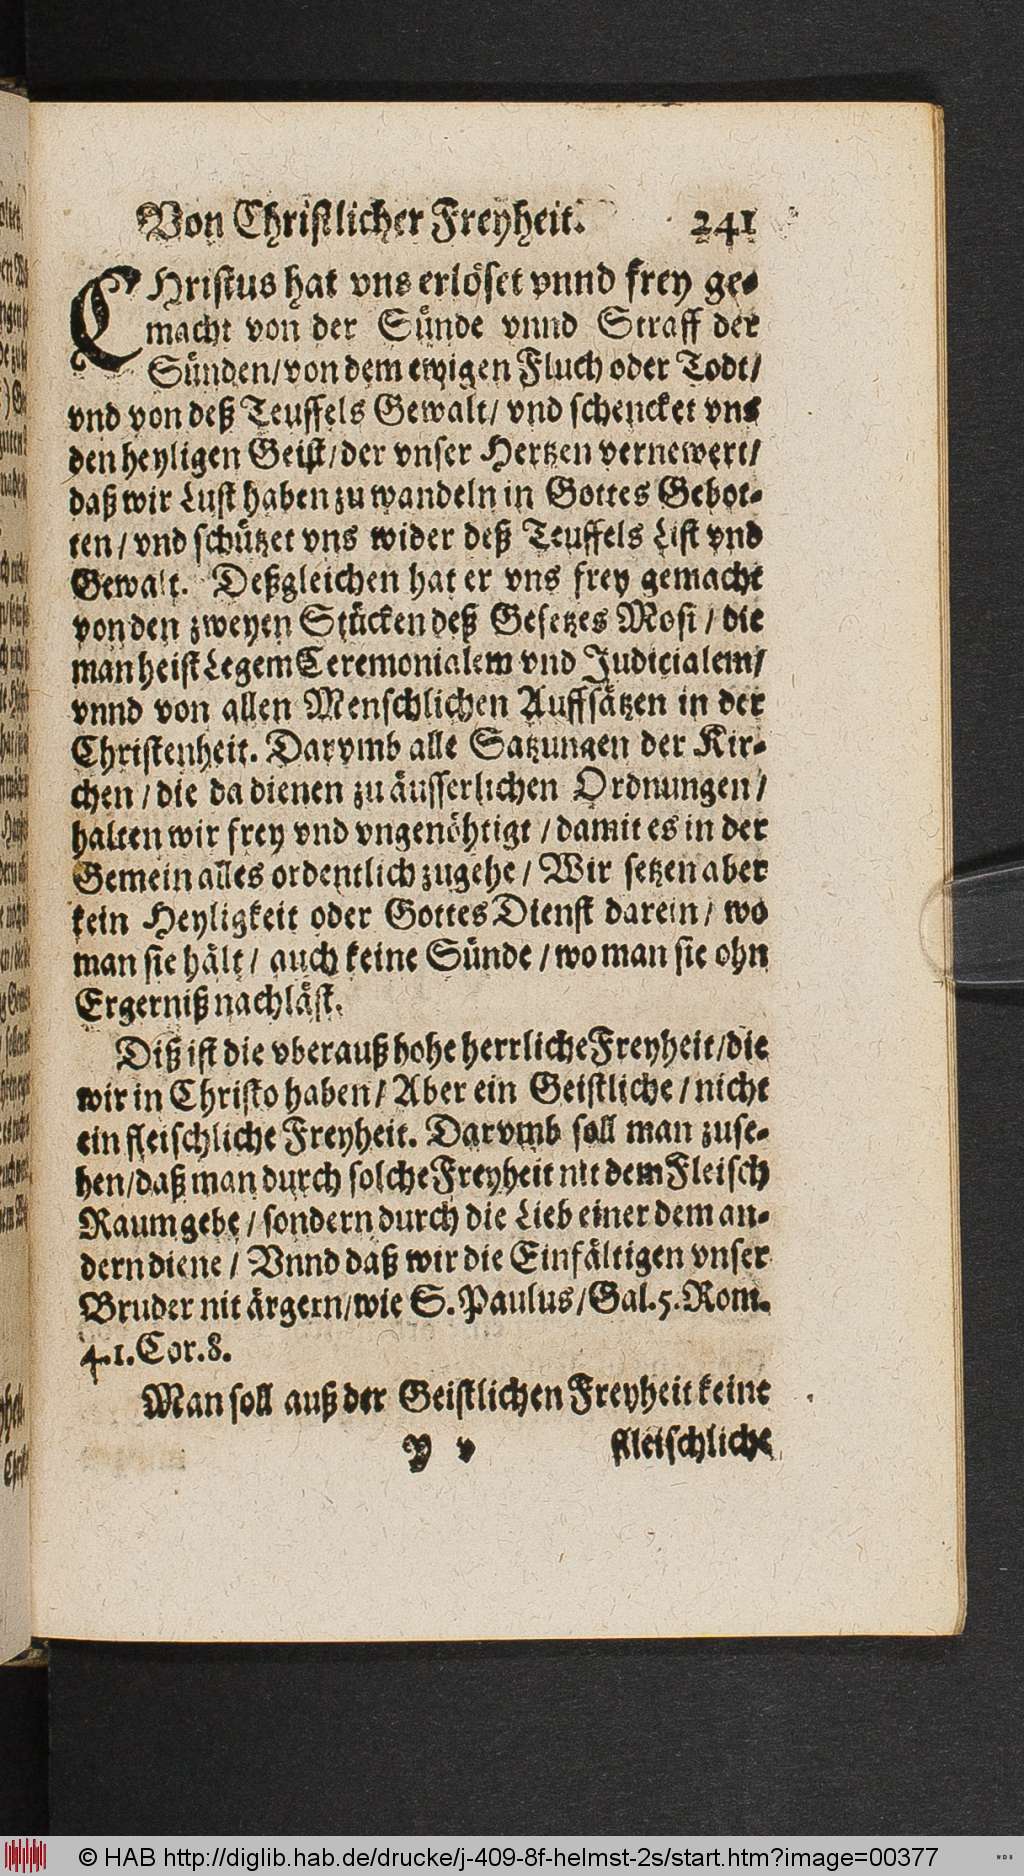 Von Christlicher Freyheit. 241
CHristus hat vns erlöset vnnd frey ge-
macht von der Sünde vnnd Straff der
Sünden/von dem ewigen Fluch oder Todt/
vnd von deß Teuffels Gewalt/ vnd schencket vns
den heyligen Geist/der vnser Hertzen vernewert/
daß wir Lust haben zu wandeln in Gottes Gebot-
ten/ vnd schützet vns wider deß Teuffels List vnd
Gewalt. Deßgleichen hat er vns frey gemacht
von den zweyen Stücken deß Gesetzes Mosi/ die
man heist Legem Ceremonialem vnd Judicialem/
vnnd von allen Menschlichen Auffsätzen in der
Christenheit. Darvmb alle Satzungen der Kir-
chen/ die da dienen zu äusserlichen Ordnungen/
halten wir frey vnd vngenöhtigt/ damit es in der
Gemein alles ordentlich zugehe/ Wir setzen aber
kein Heyligkeit oder Gottes Dienst darein/ wo
man sie hält/ auch keine Sünde/ wo man sie ohn
Ergerniß nachläst.
Diß ist die vberauß hohe herrliche Freyheit/die
wir in Christo haben/ Aber ein Geistliche/ nicht
ein fleischliche Freyheit. Darvmb soll man zuse-
hen/daß man durch solche Freyheit nit dem Fleisch
Raum gebe/ sondern durch die Lieb einer dem an-
dern diene/ Vnnd daß wir die Einfältigen vnser
Bruder nit ärgern/wie S. Paulus/Gal.5. Rom.
4.1.Cor.8.
Man soll auß der Geistlichen Freyheit keine
Y v fleischliche
© HAB http://diglib.hab.de/drucke/j-409-8f-helmst-2s/start.htm?image=00377